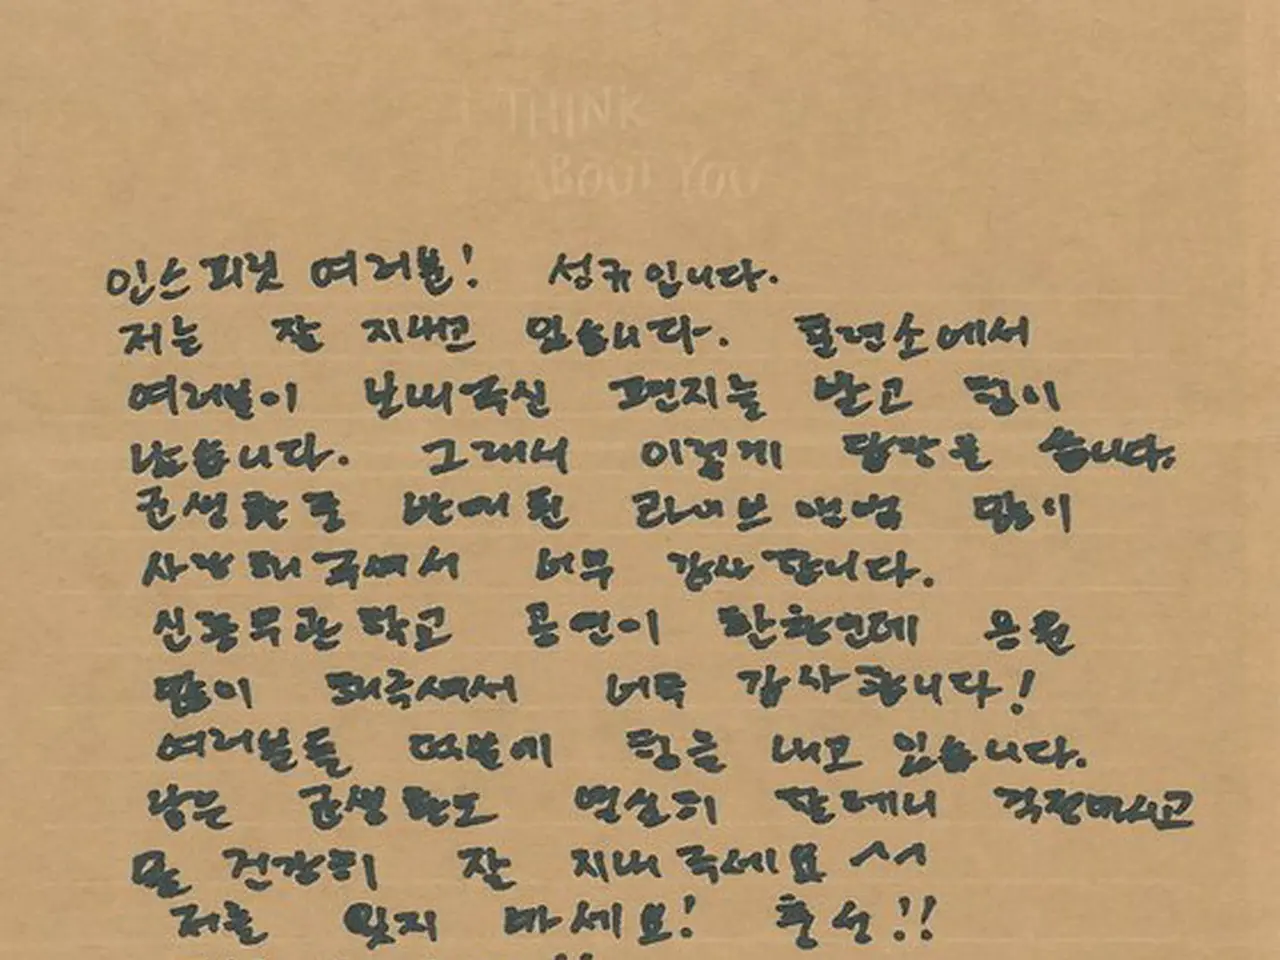 I THINK
ABOUT YOU
인스피릿 여러분! 성규입니다.
저는 잘 지내고 있습니다. 훈련소에서
여러분이 보내주신 편지들 받고 힘이
났습니다. 그래서 이렇게 답장을 씁니다.
군생활 중 발매된 라이브 앨범 많이
사랑해주셔서 너무 감사합니다.
신흥무관학교 공연이 한창인데 응원
많이 해주셔서 너무 감사합니다!
여러분들 덕분에 힘을 내고 있습니다.
남은 군생활도 열심히 할테니 걱정마시고
몸 건강히 잘 지내주세요 ^^
저를 잊지 마세요! 충성!!